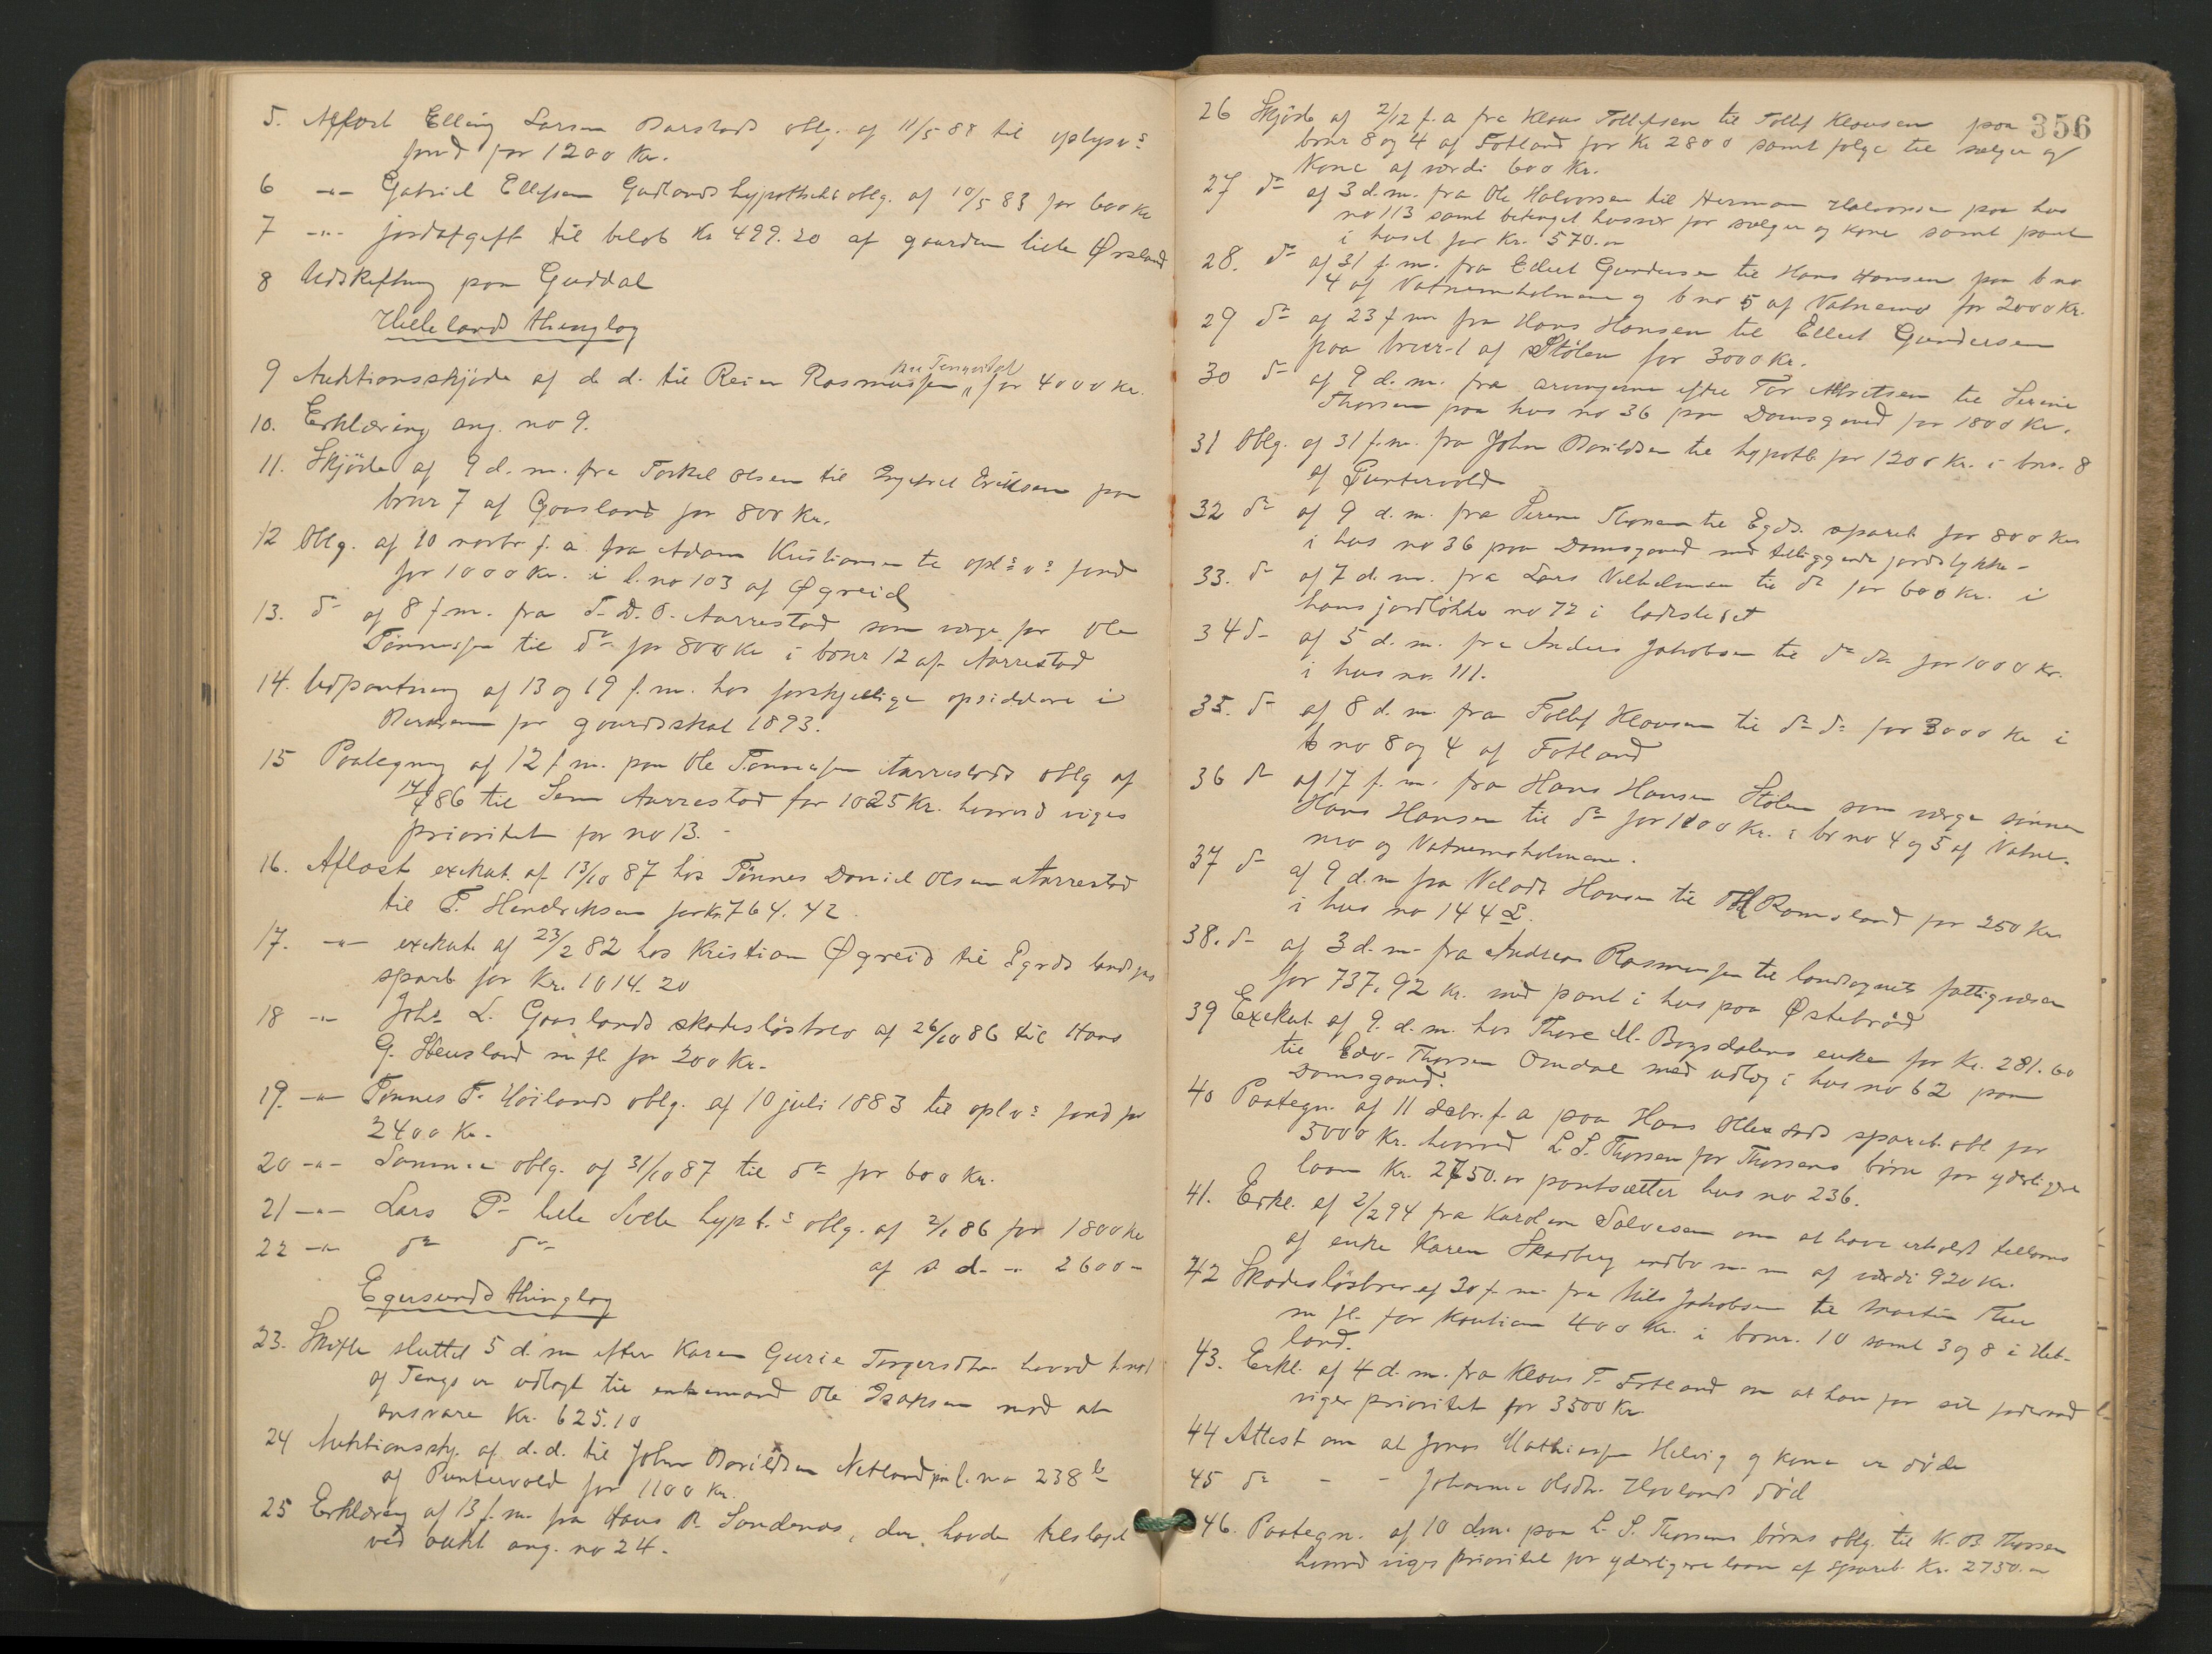 5. Aflöst Elling Larsen Barstads oblg. af 11/5 88 til oplysn.s
fond for 1200 Kr.
6 -"- Gabriel Ellefsen Gudlands hypotheks oblg. af 10/5 83 for 600 Kr
7 -"- jordafgift til beløb Kr 499.20 af gaarden lille Ørsland
8 Udskiftning paa Guddal
Hellelands thinglag
9 Auktionsskjøde af d. d. til Reier Rasmussen for 4000 Kr.
10. Erklæring ang. no 9.
11. Skjöde af 9 d. m. fra Torkel Olsen til Eriksen paa
bnr 7 af Gaasland for 800 Kr.
12 Oblg. af 10 novbr f. a. fra Adam Kristiansen til opl.s v.s fond
for 1000 Kr. i l. no 103 af Øgreid
13. do af 8 f. m. fra T. D. O. Aarrestad som værge for Ole
Tönnessen til do for 800 Kr i bnr 12 af Aarrestad
14. Udpantning af 13 og 19 f. m. hos forskjellige opsiddere i
for gaardsskat 1893.
15 Paategning af 12 f. m. paa Ole Tönnessen Aarrestads oblg af
86 til Aarrestad for 1025 Kr. hvorved viges
prioritet for no 13. -
16. Aflöst exekut. af 13/10 87 hos Tönnes Daniel Olsen Aarrestad
til T. Hendriksen for Kr. 764.42
17. -"- exekut. af 23/2 82 hos Kristian Øgreid til Egrds landsgns
sparb for Kr. 1014.20
18 -"- Johs L. Gaaslands skadeslösbrev af 26/10 86 til Hans
G. Steusland m fl. for 200 Kr.
19. -"- Tönnes T. Höilands oblg. af 10 juli 1883 til opl v.s fond for
2400 Kr.
20 -"- Samme oblg. af 31/10 87 til do for 600 Kr.
21 -"- Lars P. lille Svela hypt.s oblg. af 2/1 86 for 1800 Kr
22 -"- do do af s. d. -" 2600 -
Egersunds thinglag
23. Skifte sluttet 5 d. m. efter Karen Gurie Torgersdtr hvorved
af Tengs er udlagt til enkemand Ole Isaksen mod at
ansvare Kr. 625.10
24 Auktionsskj. af d. d. til John Bovildsen Netland paa l. no 238 b
af Puntervold for 1100 Kr.
25 Erklæring af 13 f. m. fra Hans R. Söndenaa, der havde tilslaget
ved aukt ang. no 24.
356
26 Skjöde af 2/12 f. a fra Klaus Tollefsen til Tollef Klausen paa
bnr 8 og 4 af Fotland for Kr 2800 samt følge til sælger og
Kone af værdi 600 Kr.
27 do af 3 d. m. fra Ole Halvorsen til Herman Halvorsen paa hus
no 113 samt betinget husvær for sælger og kone samt pant
i huset for Kr. 570.00
28. do af 31 f. m. fra Ellert Gundersen til Hans Hansen paa b no
4 af Vatnemoholmene og b no 5 af Vatnemo for 2000 Kr.
29 do af 23 f m fra Hans Hansen til Ellert Gundersen
paa bnr 1 af Stölen for 3000 Kr.
30 do af 9 d. m. fra arvingerne efter Tor Alvritsen til Serine
Thorsen paa hus no 36 paa Damsgaard for 1800 Kr.
31 Oblg. af 31 f. m. fra John Bovildsen til hypoth for 1200 Kr. i bnr. 8
af Puntervold
32 do af 9 d. m. fra Serine Thorsen til Egds. spareb for 800 Kr
i hus no 36 paa Damsgaard med tilliggende jordstykke -
33. do af 7 d. m. fra Lars Vilhelmsen til do for 600 Kr. i
hans jordlökke no 72 i ladestedet
34 do af 5 d. m. fra Anders Jakobsen til do do for 1000 Kr.
i hus no. 111.
35. do af 8 d. m. fra Tollef Klausen til do do for 3000 Kr i
b no 8 og 4 af Fotland
36 do af 17 f. m. fra Hans Hansen Stölen som værge sönnen
Hans Hansen til do for 1100 Kr. i br no 4 og 5 af Vatne-
mo og Vatnemoholmene.
37 do af 9 d. m fra Hansen til Romsland for 250 Kr
i hus no 144
38. do af 3 d. m. fra Andreas Rasmussen til landsognets fattigvæsen
for 737.92 Kr. med pant i hus paa Østebröd
39 Exekut. af 9. d. m. hos Thore M. Bogsdalens enke for Kr. 281.60
til Edv. Thorsen Omdal med udlæg i hus no 62 paa
Damsgaard.
40 Paategn. af 11 decbr. f. a paa Hans spareb. obl for
3000 Kr. hvorved L. S. Thorsen for Thorsens börn for yderligere
laan Kr. 2750.00 pantsætter hus no 236.
41. Erkl. af 2/2 94 fra Karoline Salvesen om at have erholdt tillaans
af enke Karen Skadberg indbo m. m. af værdi 920 Kr.
42 Skadeslösbrev af 30 f. m. fra Nils Jakobsen til Martin
m fl. for kaution 400 Kr. i bnr. 10 samt 3 og 8 i Het-
land.
43. Erkl. af 4 d. m. fra Klaus T. Fotland om at han for sit föderaad
viger prioritet for 3500 Kr
44 Attest om at Jonas Mathiassen Helvig og kone er døde
45 do - - Johanne Olsdtr. Hovland död
46. Paategn. af 10 d m. paa L. S. Thorsens börns oblg. til K. B. Thorsen
hvorved viges prioritet for yderligere laan af spareb. Kr. 2750.00